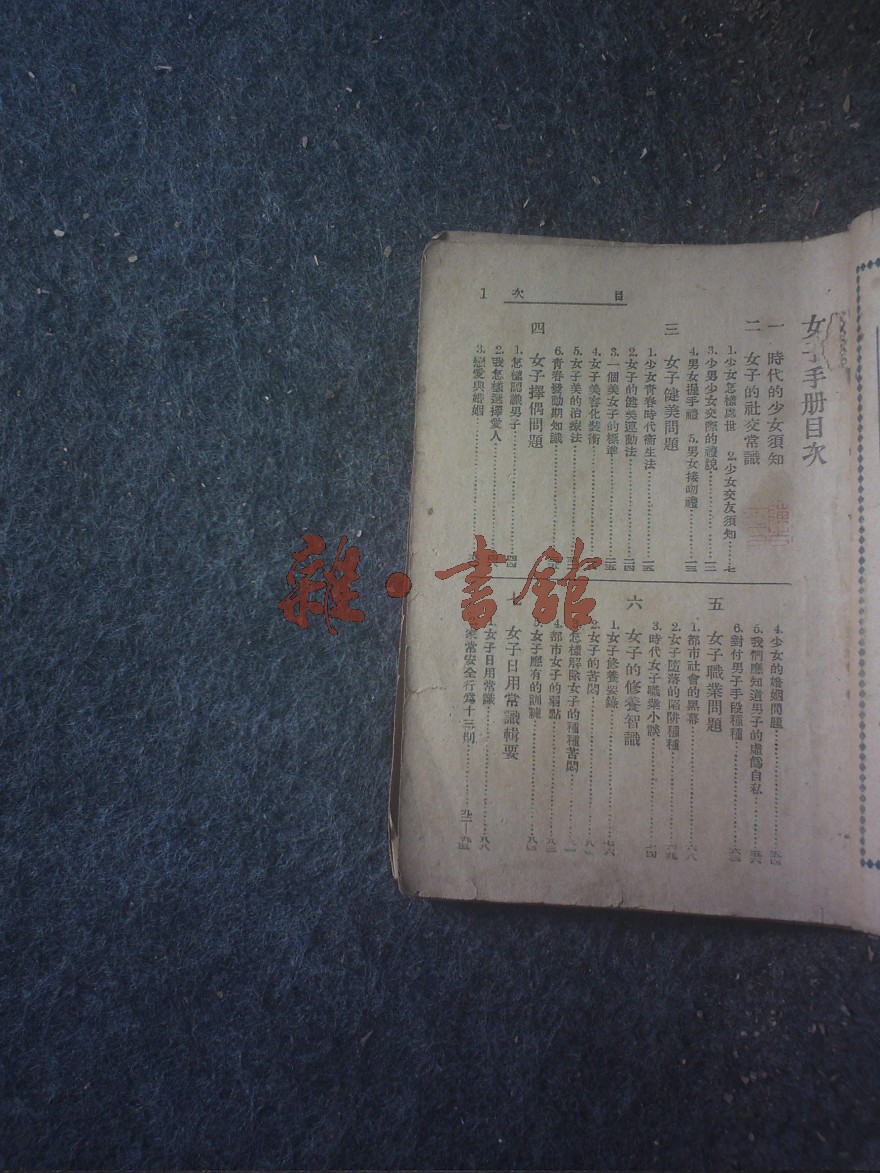 目次 1
女子手册目次
一 時代的少女須知
二 女子的社交常識
1. 少女怎樣處世 2. 少女交友須知……七
3. 少男少女交際的禮貌……一二
4. 男女握手禮 5. 男女接吻禮……一三
三 女子健美問題
1. 少女青春時代衞生法……一五
2. 女子的健美運動法……二四
3. 一個美女子的標準……二五
4. 女子美容化裝術
5. 女子美的治療法
6. 青春發動期知識
四 女子擇偶問題
1. 怎樣認識男子……四四
2. 我怎樣選擇愛人
3. 戀愛與婚姻
4. 少女的婚姻問題……五四
5. 我們應知道男子的虛僞自私……五六
6. 對付男子手段種種……六二
五 女子職業問題
1. 都市社會的黑幕……六八
2. 女子墮落的陷阱種種……六九
3. 時代女子職業小談……七四
六 女子的修養智識
1. 女子修養要錄……七六
2. 女子的苦悶
怎樣解除女子的種種苦悶
4. 都市女子的弱點
女子應有的訓練
七 女子日用常識輯要
1. 女子日用常識……八八
家常安全行爲十三則
雜·書館